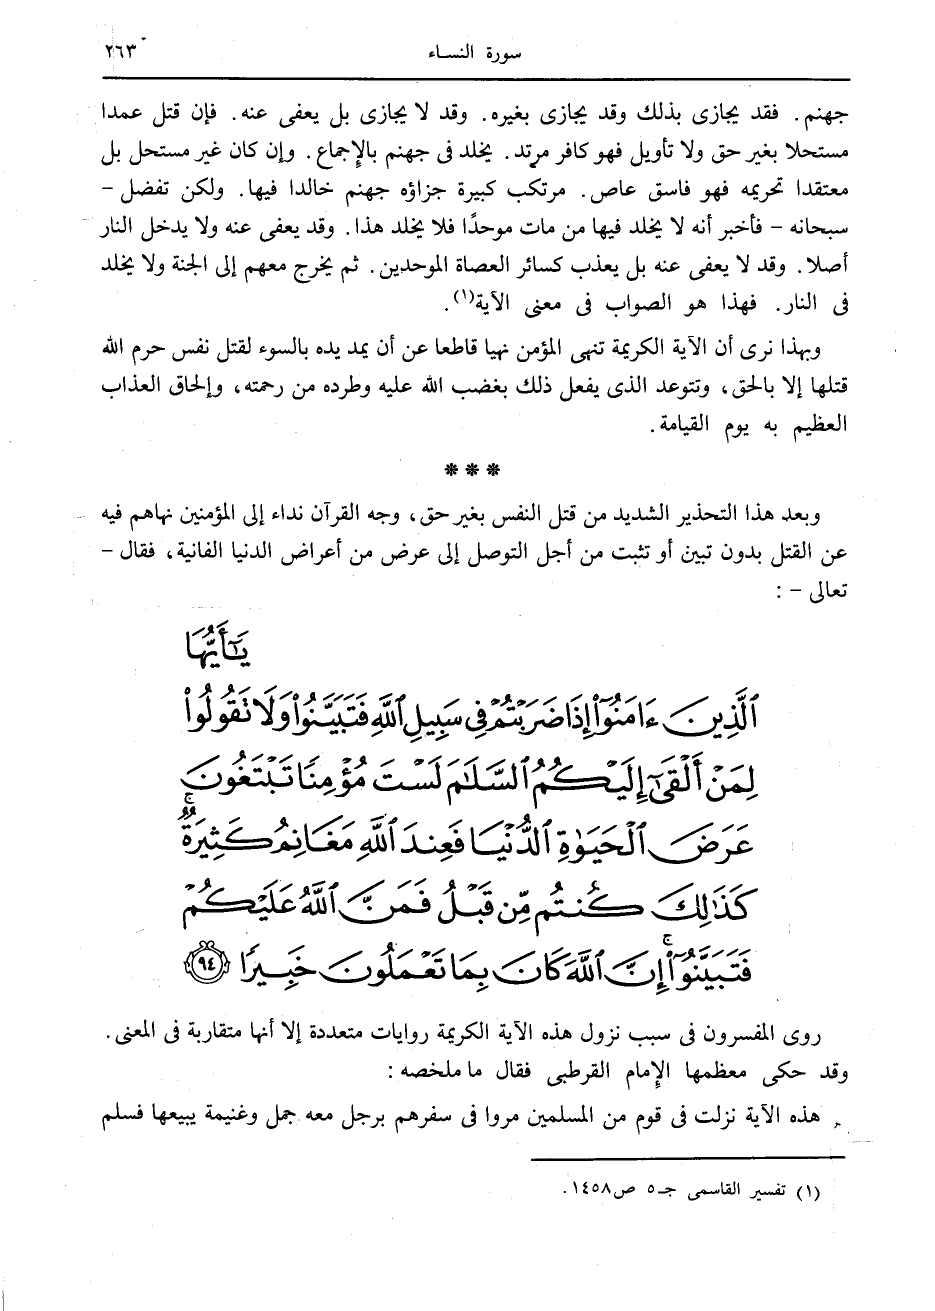 سورة النساء ٢٦٣
جهنم. فقد يجازى بذلك وقد يجازى بغيره. وقد لا يجازى بل يعفى عنه. فإن قتل عمدا
مستحلا بغير حق ولا تأويل فهو كافر مرتد. يخلد فى جهنم بالإجماع. وإن كان غير مستحل بل
معتقدا تحريمه فهو فاسق عاص. مرتكب كبيرة جزاؤه جهنم خالدا فيها. ولكن تفضل –
سبحانه – فأخبر أنه لا يخلد فيها من مات موحدًا فلا يخلد هذا. وقد يعفى عنه ولا يدخل النار
أصلا. وقد لا يعفى عنه بل يعذب كسائر العصاة الموحدين. ثم يخرج معهم إلى الجنة ولا يخلد
فى النار. فهذا هو الصواب فى معنى الآية(١).
وبهذا نرى أن الآية الكريمة تنهى المؤمن نهيا قاطعا عن أن يمد يده بالسوء لقتل نفس حرم الله
قتلها إلا بالحق، وتتوعد الذى يفعل ذلك بغضب الله عليه وطرده من رحمته، وإلحاق العذاب
العظيم به يوم القيامة.
***
وبعد هذا التحذير الشديد من قتل النفس بغير حق، وجه القرآن نداء إلى المؤمنين نهاهم فيه
عن القتل بدون تبين أو تثبت من أجل التوصل إلى عرض من أعراض الدنيا الفانية، فقال –
تعالى – :
يَـٰٓأَيُّهَا
ٱلَّذِينَ ءَامَنُوٓا۟ إِذَا ضَرَبْتُمْ فِى سَبِيلِ ٱللَّهِ فَتَبَيَّنُوا۟ وَلَا تَقُولُوا۟
لِمَنْ أَلْقَىٰٓ إِلَيْكُمُ ٱلسَّلَـٰمَ لَسْتَ مُؤْمِنًا تَبْتَغُونَ
عَرَضَ ٱلْحَيَوٰةِ ٱلدُّنْيَا فَعِندَ ٱللَّهِ مَغَانِمُ كَثِيرَةٌ ۚ
كَذَٰلِكَ كُنتُم مِّن قَبْلُ فَمَنَّ ٱللَّهُ عَلَيْكُمْ
فَتَبَيَّنُوٓا۟ ۚ إِنَّ ٱللَّهَ كَانَ بِمَا تَعْمَلُونَ خَبِيرًا ٩٤
روى المفسرون فى سبب نزول هذه الآية الكريمة روايات متعددة إلا أنها متقاربة فى المعنى.
وقد حكى معظمها الإمام القرطبى فقال ما ملخصه :
هذه الآية نزلت فى قوم من المسلمين مروا فى سفرهم برجل معه جمل وغنيمة يبيعها فسلم
(١) تفسير القاسمى جـ٥ ص١٤٥٨.